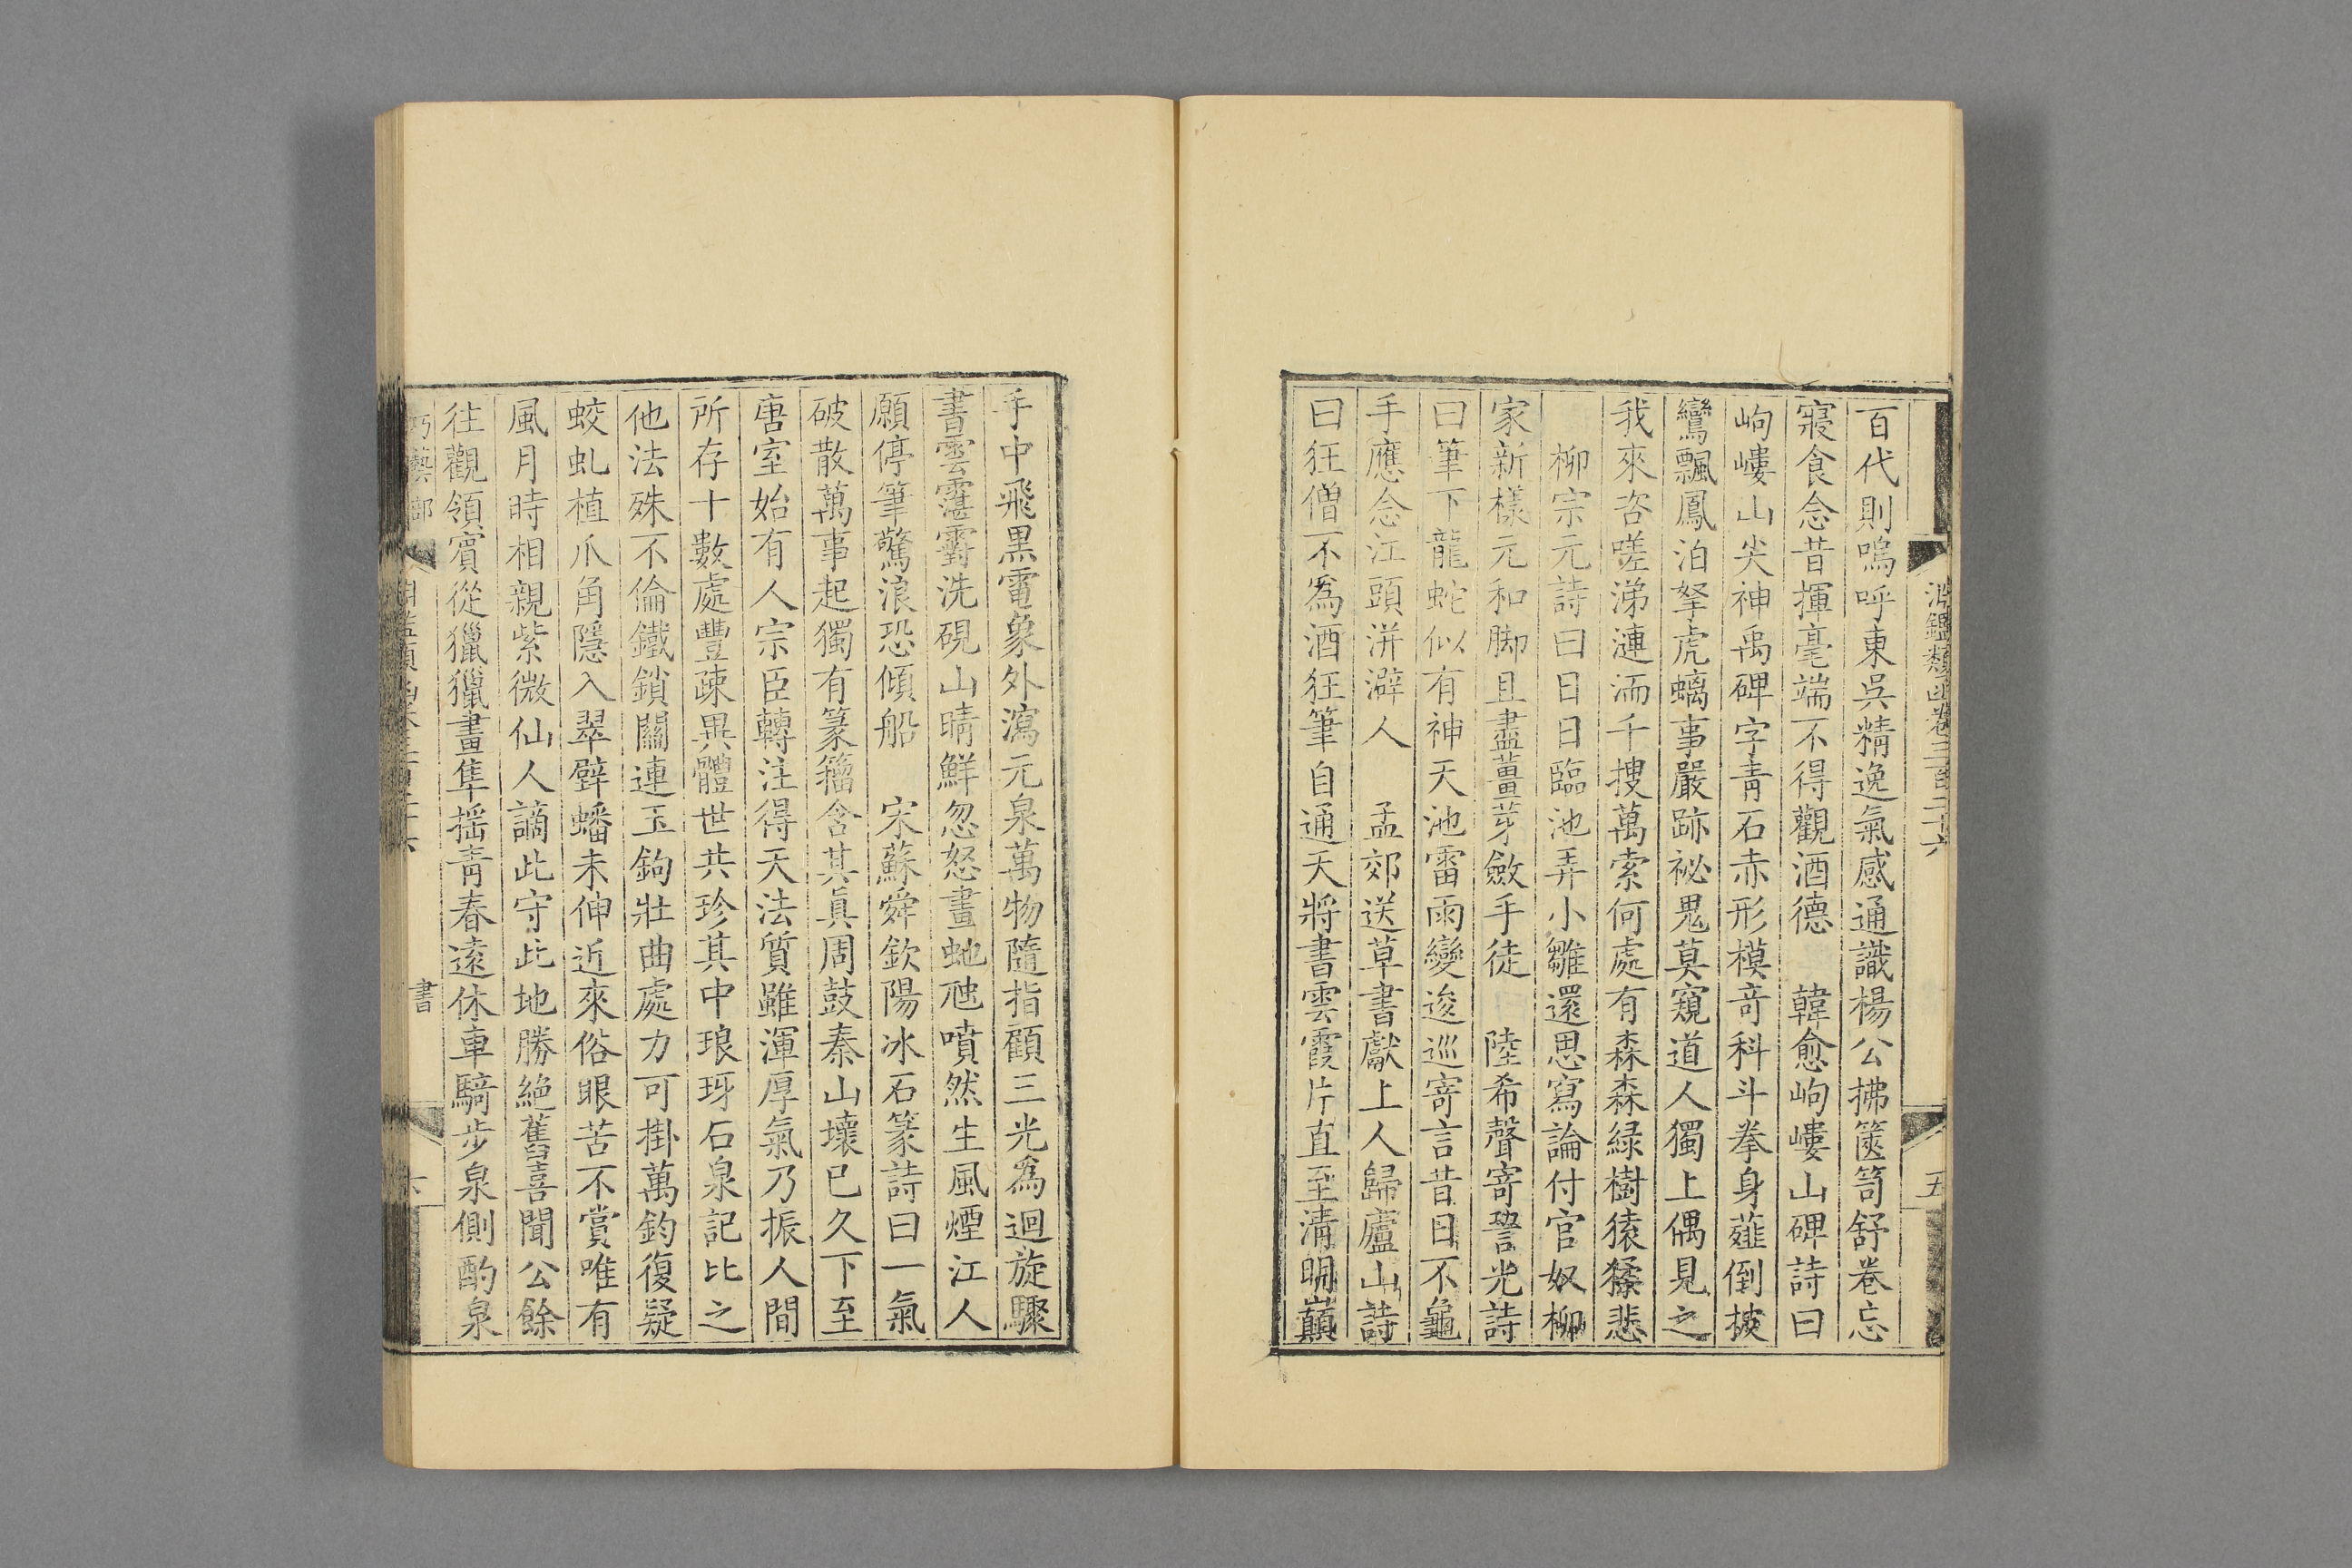 淵鑑類函卷三百二十六
五
百代則嗚呼東吳精逸氣感通識楊公拂篋笥舒卷忘
寢食念昔揮毫端不得觀酒德　韓愈岣嶁山碑詩曰
岣嶁山尖神禹碑字青石赤形模竒科斗拳身薤倒披
鸞飄鳳泊拏虎螭事嚴跡祕鬼莫窺道人獨上偶見之
我來咨嗟涕漣洏千搜萬索何處有森森緑樹猿猱悲
柳宗元詩曰日日臨池弄小雛還思寫論付官奴柳
家新樣元和脚且盡薑芽斂手徒　陸希聲寄䛒光詩
曰筆下龍蛇似有神天池雷雨變逡巡寄言昔日不龜
手應念江頭洴澼人　孟郊送草書獻上人歸廬山詩
曰狂僧不爲酒狂筆自通天將書雲霞片直至清明巔
手中飛黒電象外瀉元泉萬物隨指顧三光爲迴旋驟
書雲霮䨴洗硯山晴鮮忽怒畫虵虺噴然生風煙江人
願停筆驚浪恐傾船　宋蘇舜欽陽冰石篆詩曰一氣
破散萬事起獨有篆籀含其真周鼓秦山壞已久下至
唐室始有人宗臣轉注得天法質雖渾厚氣乃振人間
所存十數處豐疎異體世共珍其中琅玡石泉記比之
他法殊不倫鐵鎖關連玉鉤壯曲處力可掛萬鈞復疑
蛟虬植爪角隱入翠壁蟠未伸近來俗眼苦不賞唯有
風月時相親紫微仙人謫此守此地勝絶舊喜聞公餘
往觀領賓從獵獵畫隼揺青春遠休車騎步泉側酌泉
巧藝部
書
六